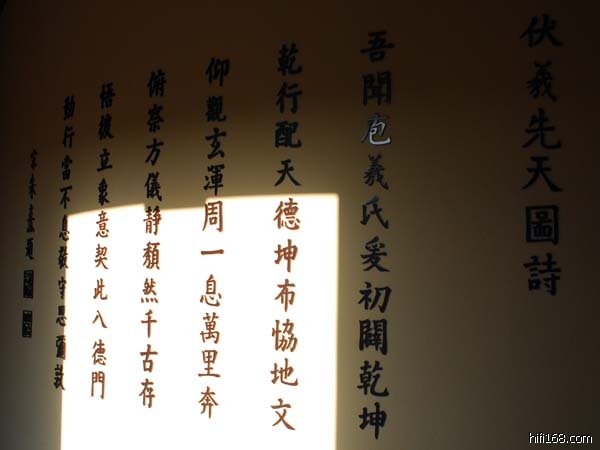 伏羲先天圖詩
吾聞庖羲氏爰初闢乾坤
乾行配天德坤布協地文
仰觀玄渾周一息萬里奔
俯察方儀靜頹然千古存
悟彼立象意契此入德門
勤行當不息敬守思彌敦
宋朱熹題
hifi168.com